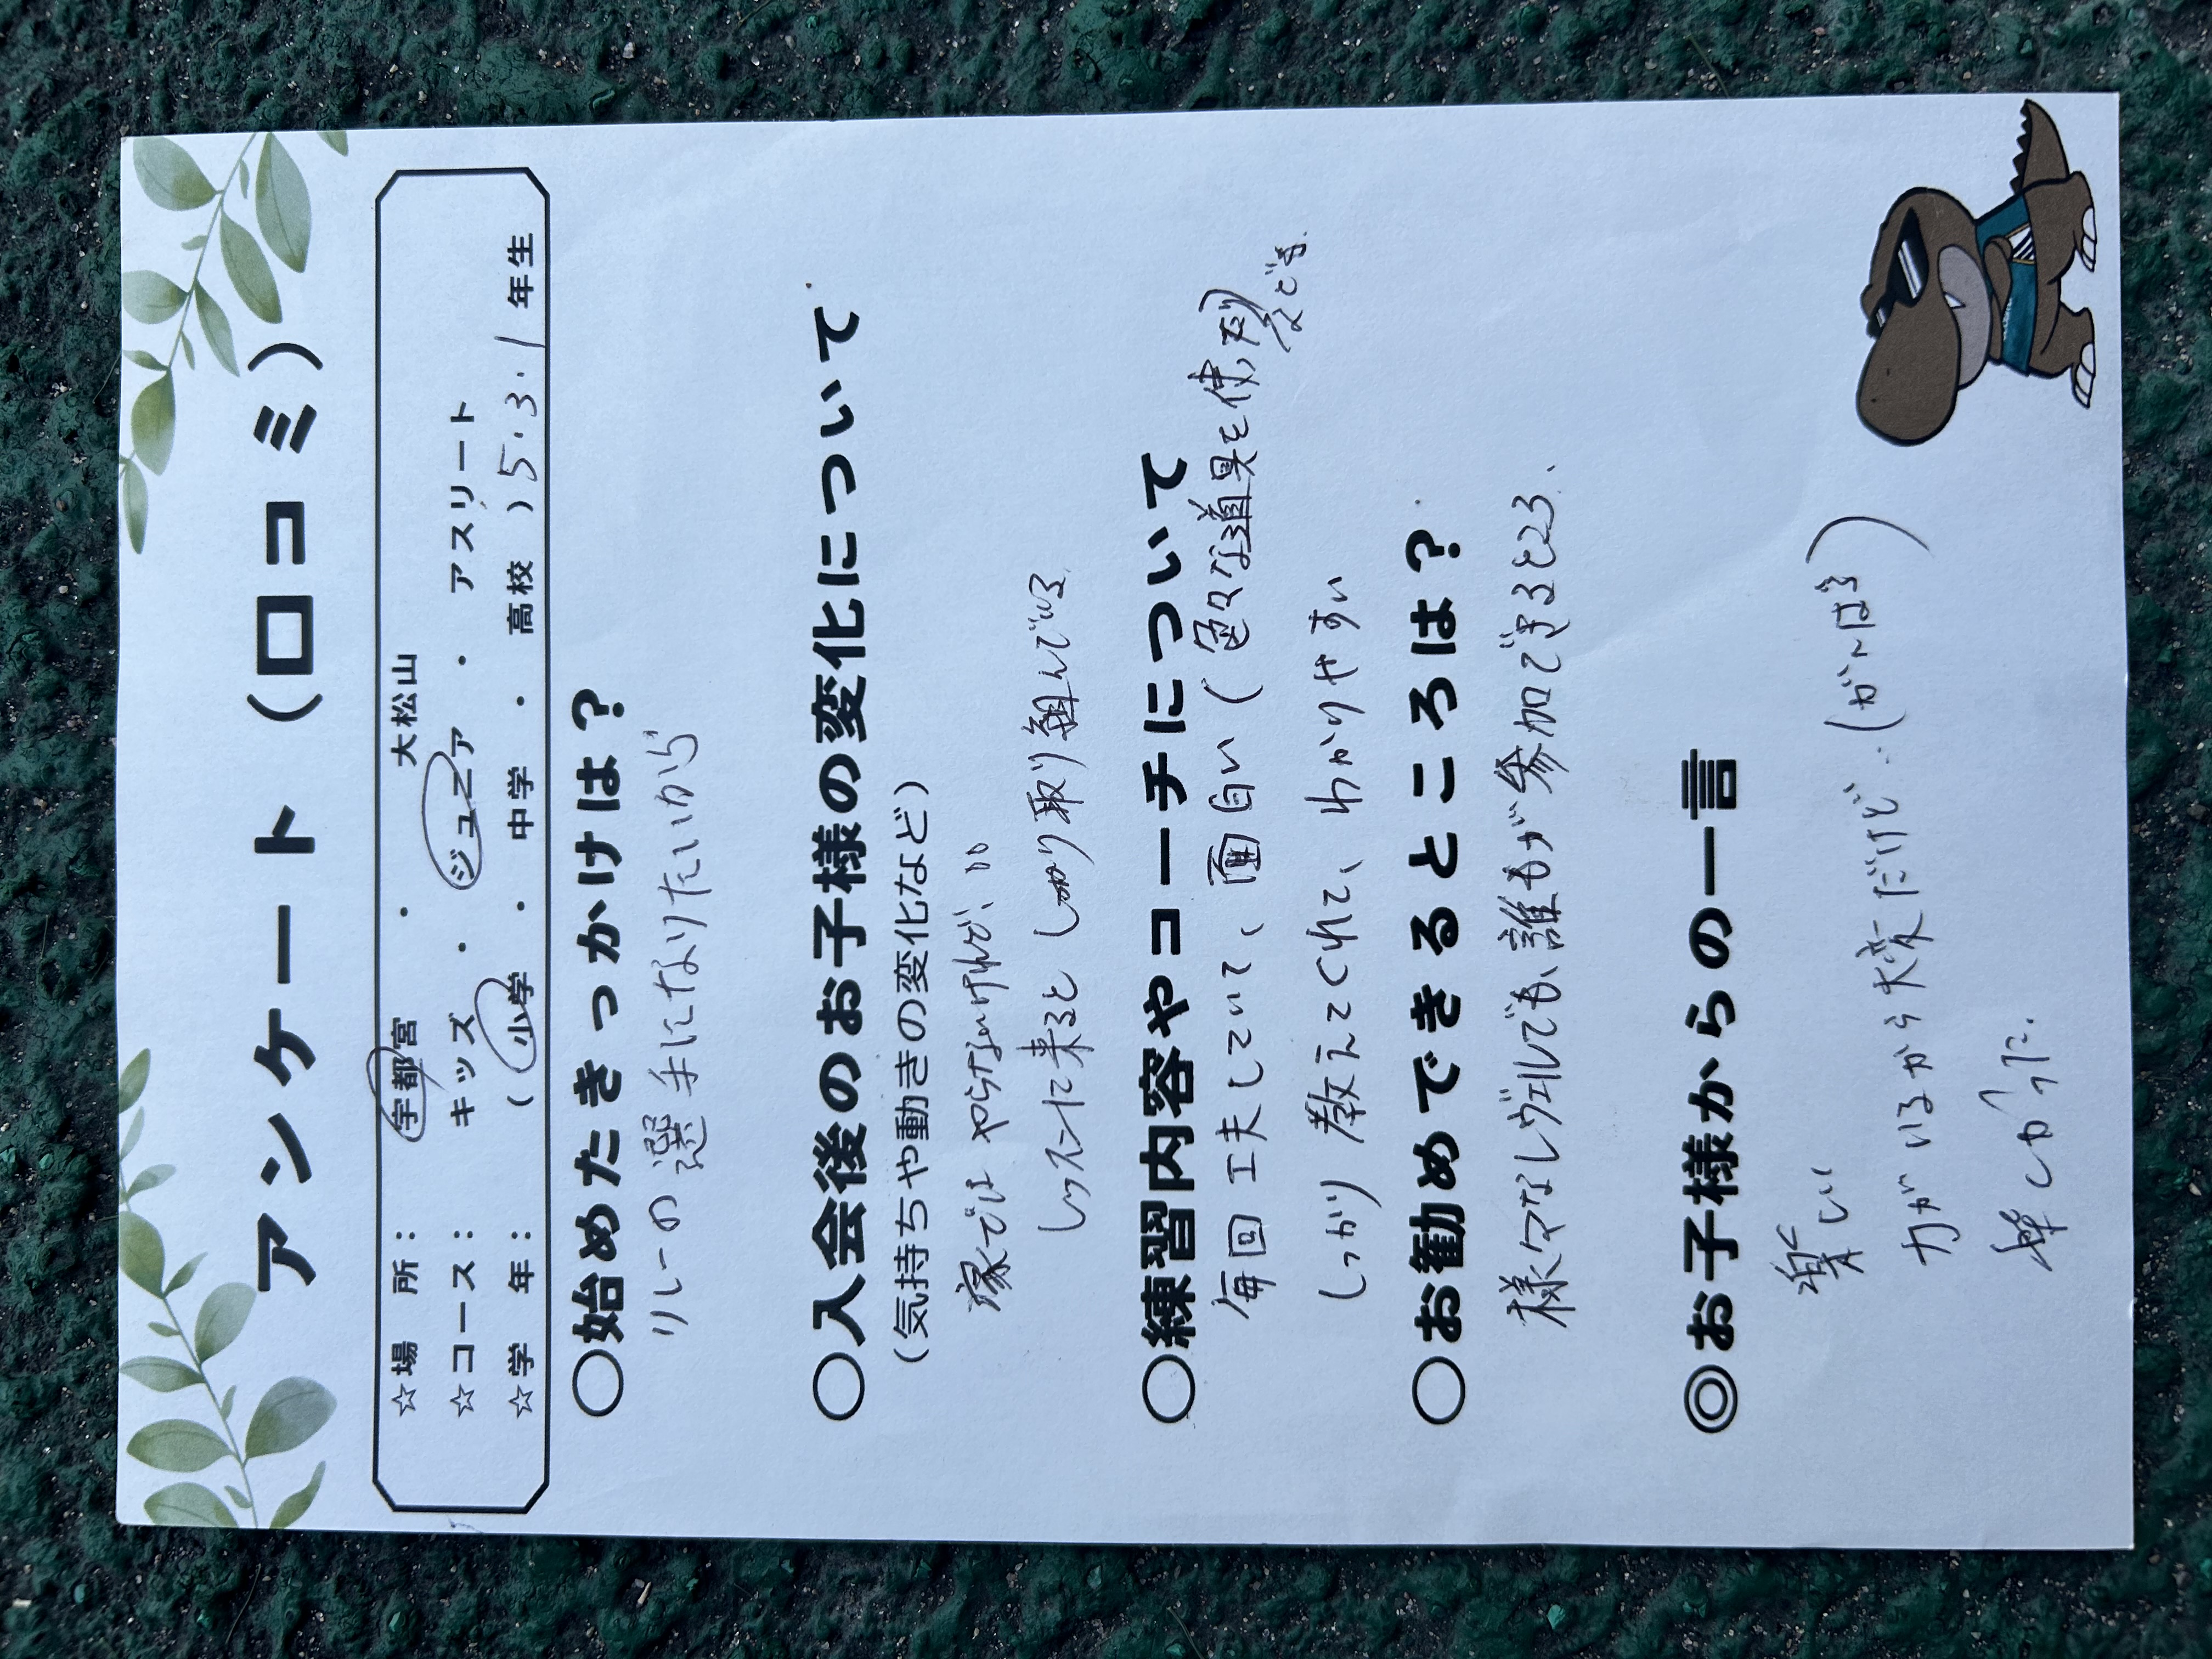 アンケート（口コミ）
☆場　所：　宇都宮　・　大松山
☆コース：　キッズ　・　ジュニア　・　アスリート
☆学　年：　（　小学　・　中学　・　高校　）5・3・1　年生
○始めたきっかけは？
リレーの選手になりたいから
○入会後のお子様の変化について
（気持ちや動きの変化など）
家では やらないけれど、
レッスンに来ると しっかり取り組んでいる
○練習内容やコーチについて
毎回工夫していて、面白い（色々な道具を使ったり）
などです。
しっかり 教えてくれて、わかりやすい
○お勧めできるところは？
様々なレヴェルでも、誰もが参加できるところ、
◎お子様からの一言
楽しい
力がいるから大変だけど、（がんばる）
楽しかった。